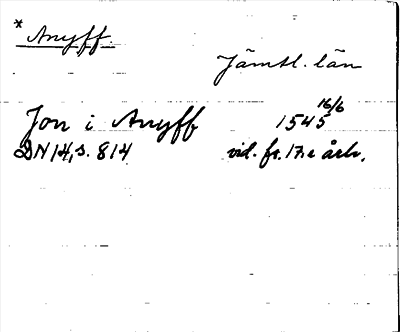 * Anyff.
Jämtl. län
Jon i Anyff 1545 16/6
DN 14, s. 814 vid. fr. 17.e årh.